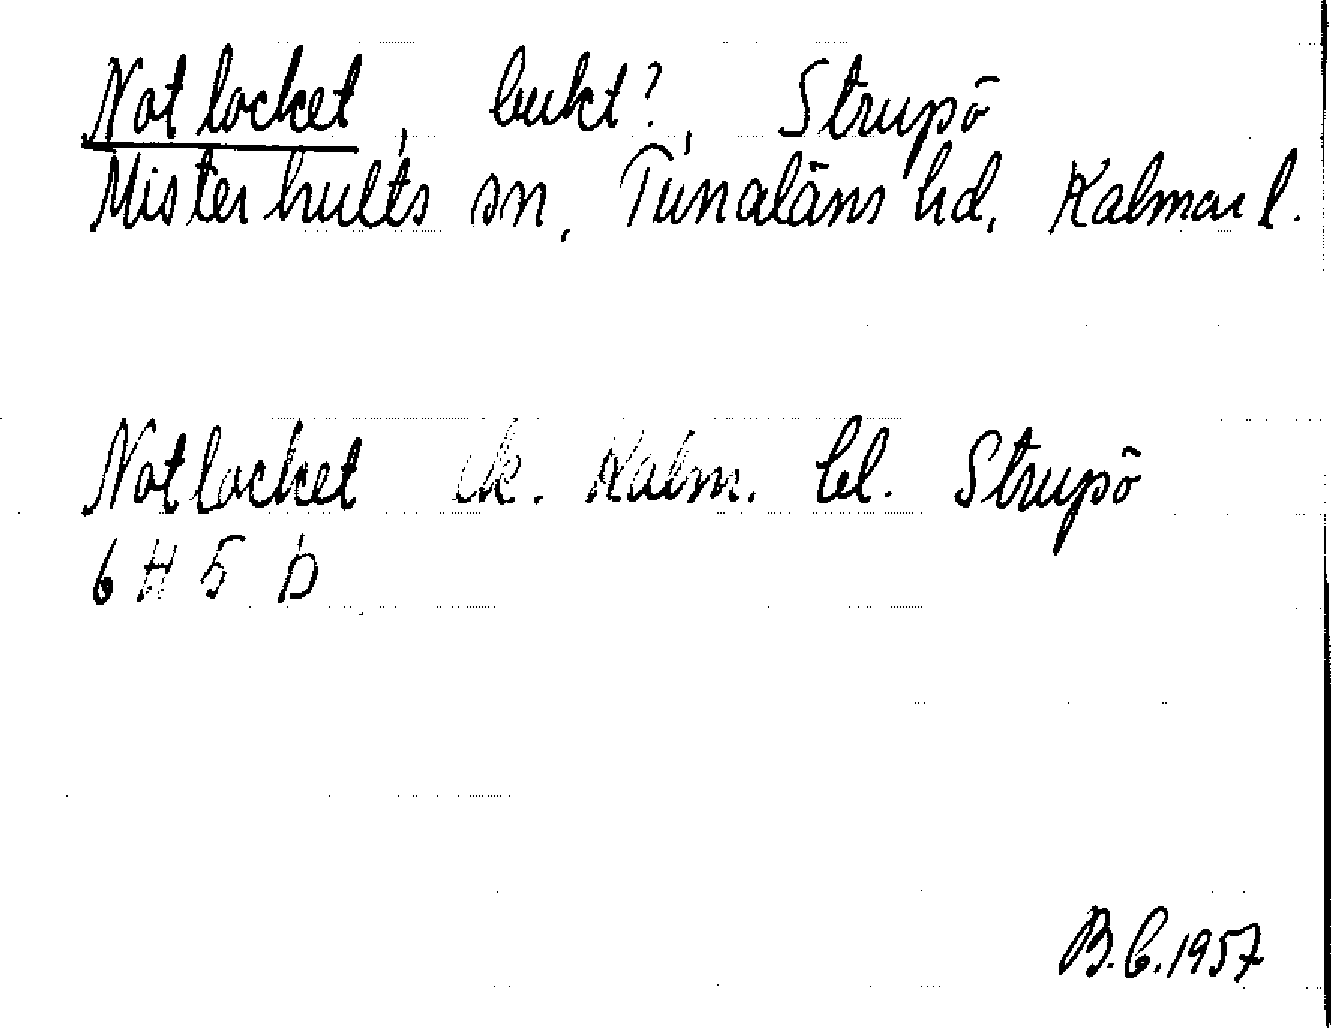 Notlocket, bukt?, Strupö
Misterhults sn, Tunaläns hd, Kalmar l.
Notlocket ek. Kalm. bl. Strupö
6 H 5 b
B.C. 1957